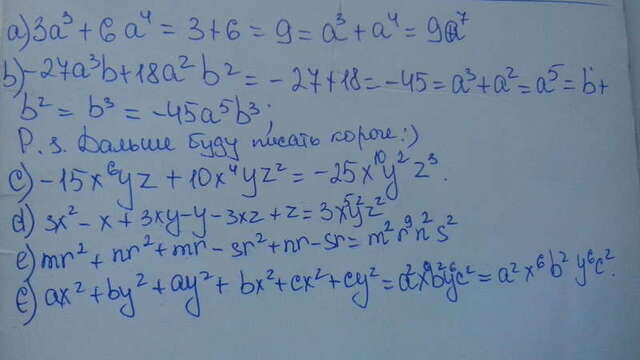 a) 3a³ + 6a⁴ = 3+6 = 9 = a³ + a⁴ = 9a⁷
b) -27a³b + 18a²b² = -27+18 = -45 = a³+a² = a⁵ = b+
b² = b³ = -45a⁵b³.
P.s. Дальше буду писать короче :)
c) -15x⁶yz + 10x⁴yz² = -25x¹⁰y²z³.
d) 3x² - x + 3xy - y - 3xz + z = 3x⁵y²z²
e) mr² + nr² + mr - sr² + nr - sr = m²r⁹n²s²
f) ax² + by² + ay² + bx² + cx² + cy² = a²x⁶b²y⁶c².